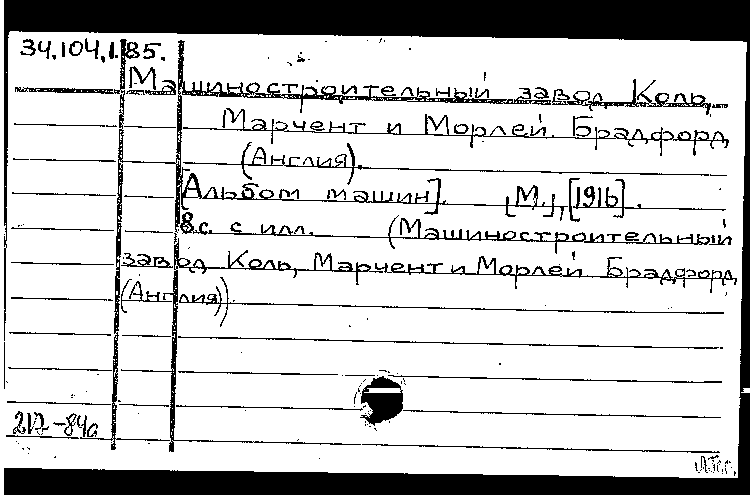 34.104.1.85.
Машиностроительный завод Коль,
Марчент и Морлей. Брадфорд
(Англия).
[Альбом машин]. [М.], [1916].
8с. с илл. (Машиностроительный
завод Коль, Марчент и Морлей Брадфорд
(Англия))
217-84а